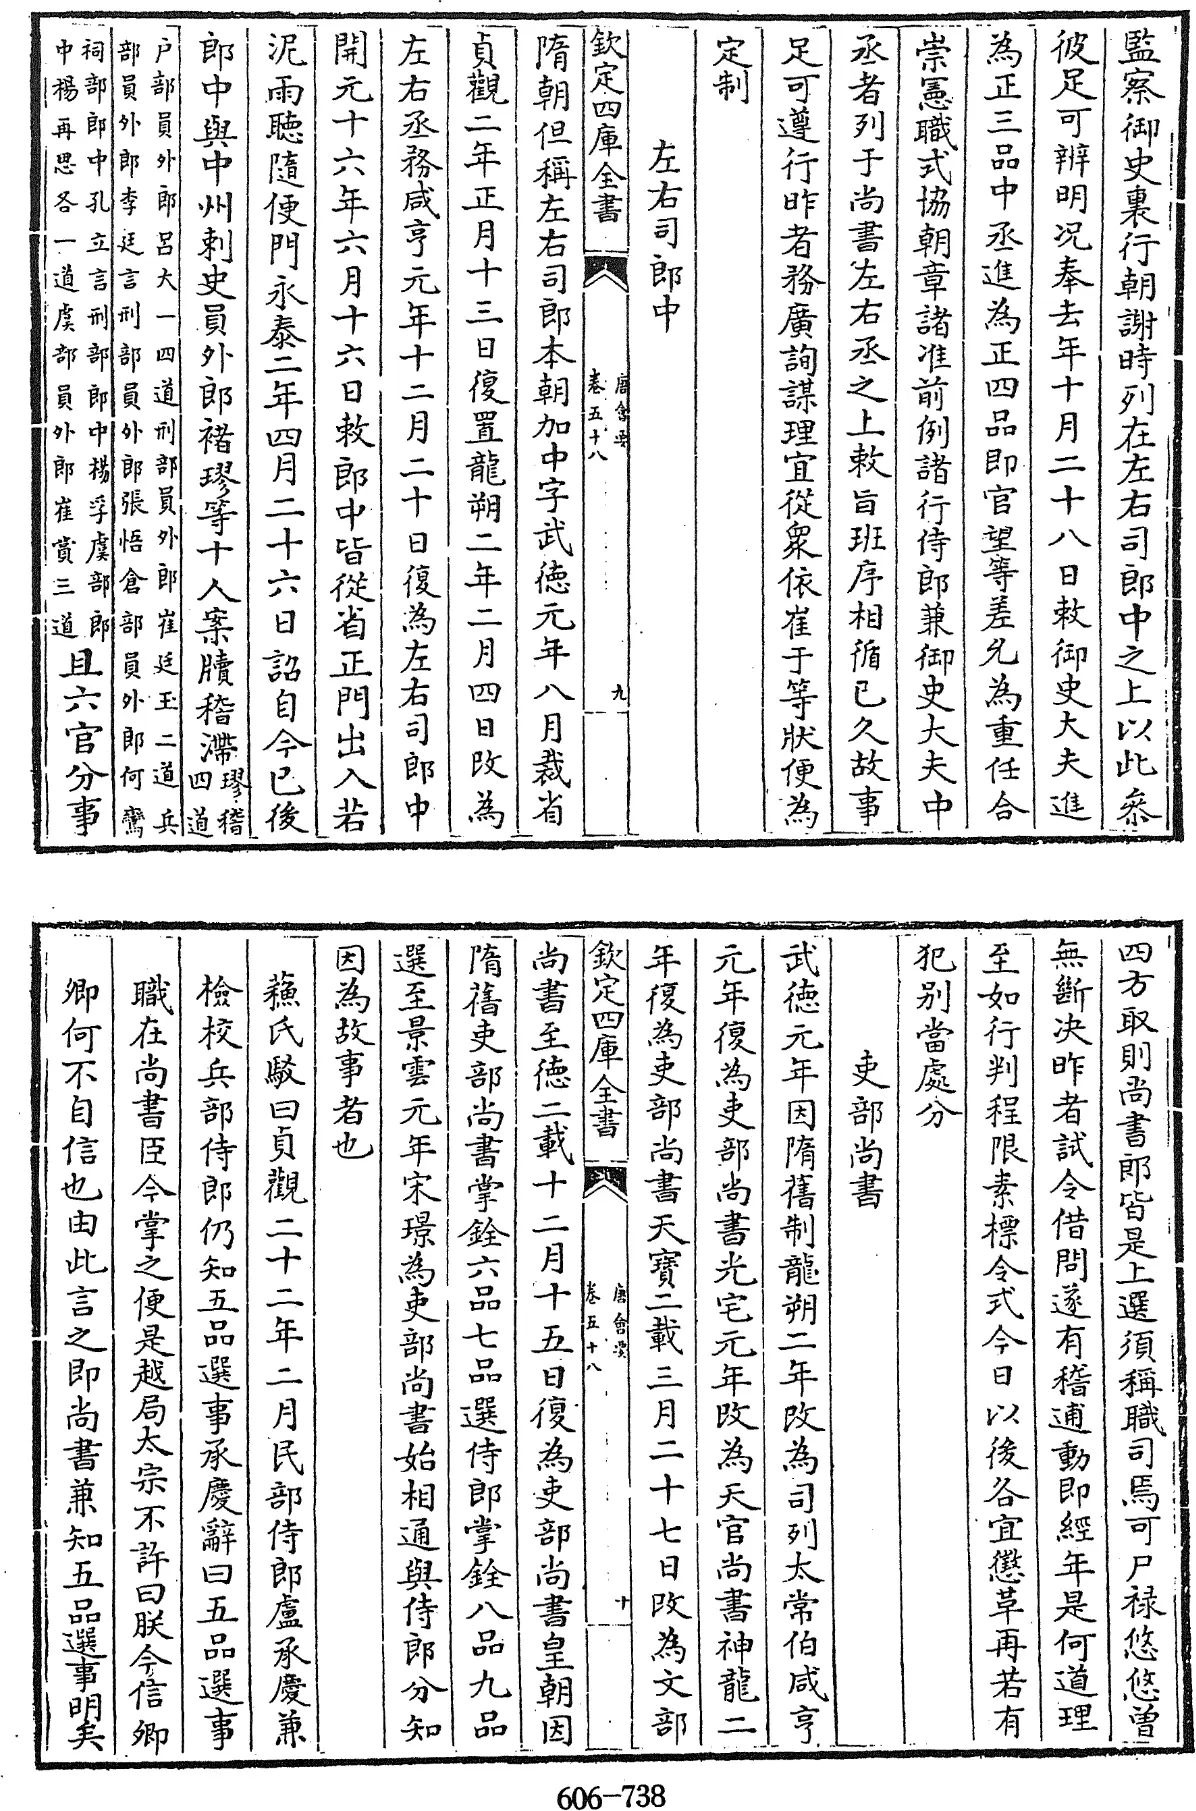 監察御史裏行朝謝時列在左右司郎中之上以此叅
彼足可辨明况奉去年十月二十八日敕御史大夫進
為正三品中丞進為正四品即官望等差允為重任合
崇憲職式協朝章諸准前例諸行侍郎兼御史大夫中
丞者列于尚書左右丞之上敕旨班序相循已久故事
足可遵行昨者務廣詢謀理宜從衆依崔于等狀便為
定制
左右司郎中
欽定四庫全書
唐會要
卷五十八
九
隋朝但稱左右司郎本朝加中字武德元年八月裁省
貞觀二年正月十三日復置龍朔二年二月四日改為
左右丞務咸亨元年十二月二十日復為左右司郎中
開元十六年六月十六日敕郎中皆從省正門出入若
泥雨聽隨便門永泰二年四月二十六日詔自今已後
郎中與中州刺史員外郎褚璆等十人案牘稽滯璆稽四道
户部員外郎呂大一四道刑部員外郎崔廷玉二道兵
部員外郎李廷言刑部員外郎張悟倉部員外郎何鸞
祠部郎中孔立言刑部郎中楊孚虞部郎
中楊再思各一道虞部員外郎崔賞三道
且六官分事
四方取則尚書郎皆是上選須稱職司焉可尸禄悠悠曾
無斷決昨者試令借問遂有稽逋動即經年是何道理
至如行判程限素標令式今日以後各宜懲革再若有
犯别當處分
吏部尚書
武德元年因隋舊制龍朔二年改為司列太常伯咸亨
元年復為吏部尚書光宅元年改為天官尚書神龍二
年復為吏部尚書天寶二載三月二十七日改為文部
欽定四庫全書
唐會要
卷五十八
十
尚書至德二載十二月十五日復為吏部尚書皇朝因
隋舊吏部尚書掌銓六品七品選侍郎掌銓八品九品
選至景雲元年宋璟為吏部尚書始相通與侍郎分知
因為故事者也
蘓氏駮曰貞觀二十二年二月民部侍郎盧承慶兼
檢校兵部侍郎仍知五品選事承慶辭曰五品選事
職在尚書臣今掌之便是越局太宗不許曰朕今信卿
卿何不自信也由此言之即尚書兼知五品選事明矣
606-738